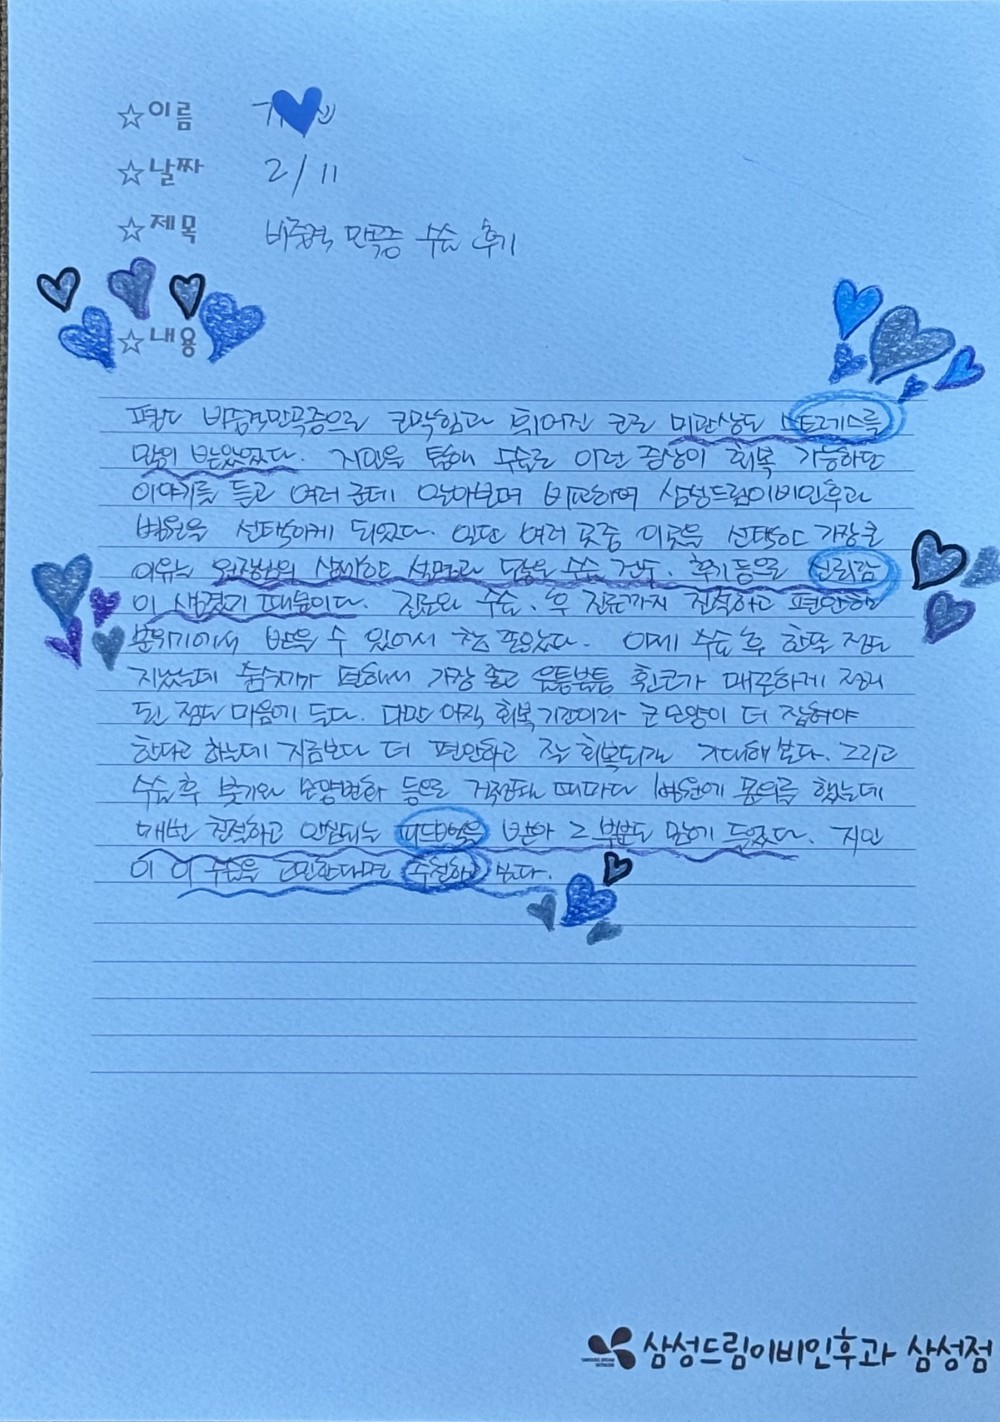 ☆이름
☆날짜 2/11
☆제목 비중격 만곡증 수술 후기
☆내용
평소 비중격만곡증으로 코막힘과 휘어진 코로 미관상도 스트레스를
많이 받았었다. 지인을 통해 수술로 이런 증상이 회복 가능하단
이야기를 듣고 여러 군데 알아보며 비교하여 삼성드림이비인후과
병원을 선택하게 되었다. 일단 여러 곳중 이곳을 선택한 가장 큰
이유는 원장님의 상세한 설명과 많은 수술 건수, 후기 등으로 신뢰감
이 생겼기 때문이다. 진료와 수술, 후 진료까지 친절하고 편안한
분위기에서 받을 수 있어서 참 좋았다. 이제 수술 후 한달 정도
지났는데 숨쉬기가 편해서 가장 좋고 울퉁불퉁 휜코가 매끈하게 정리
된 점도 마음에 든다. 다만 아직 회복기간이라 코 모양이 더 잡혀야
한다고 하는데 지금보다 더 편안하고 잘 회복되길 기대해 본다. 그리고
수술 후 붓기와 모양변화 등으로 걱정될 때마다 병원에 문의를 했는데
매번 친절하고 안심되는 피드백을 받아 그 부분도 맘에 들었다. 지인
이 이 수술을 고민한다면 추천하고 싶다.
삼성드림이비인후과 삼성점